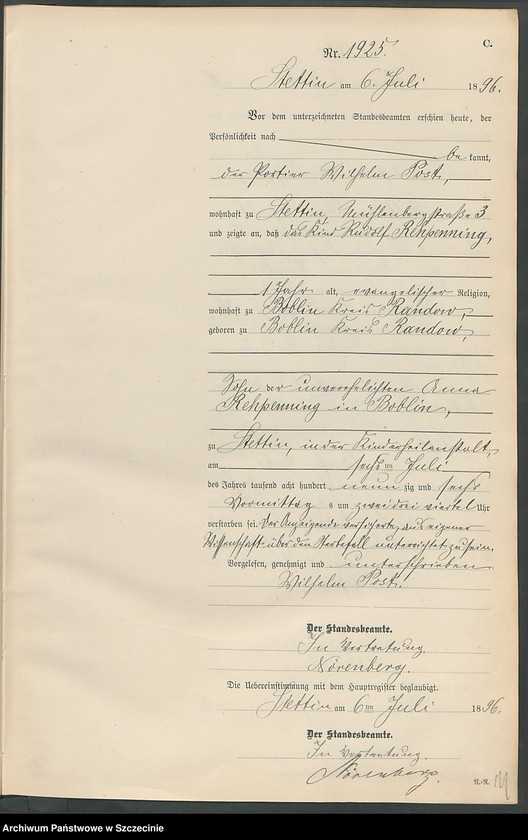 C.
Nr. 1925.
Stettin am 6. Juli 1896.
Vor dem unterzeichneten Standesbeamten erschien heute, der
Persönlichkeit nach
bekannt,
der Portier Wilhelm Post,
wohnhaft zu Stettin, Mühlenbergstraße 3
und zeigte an, daß das Kind Rudolf Rehpenning,
1 Jahr alt, evangelischer Religion,
wohnhaft zu Boblin Kreis Randow,
geboren zu Boblin Kreis Randow,
Sohn der unverehelichten Anna
Rehpenning in Boblin,
zu Stettin, in der Kinderheilanstalt
am sechsten Juli
des Jahres tausend acht hundert neunzig und sechs
Vormittags um zweidreiviertel Uhr
verstorben sei. Der Anzeigende versicherte, aus eigener
Wissenschaft über den Sterbefall unterrichtet zu sein.
Vorgelesen, genehmigt und unterschrieben
Wilhelm Post.
Der Standesbeamte.
In Vertretung.
Nörenberg.
Die Uebereinstimmung mit dem Hauptregister beglaubigt.
Stettin am 6ten Juli 1896.
Der Standesbeamte.
In Vertretung.
Nörenberg.
Archiwum Państwowe w Szczecinie